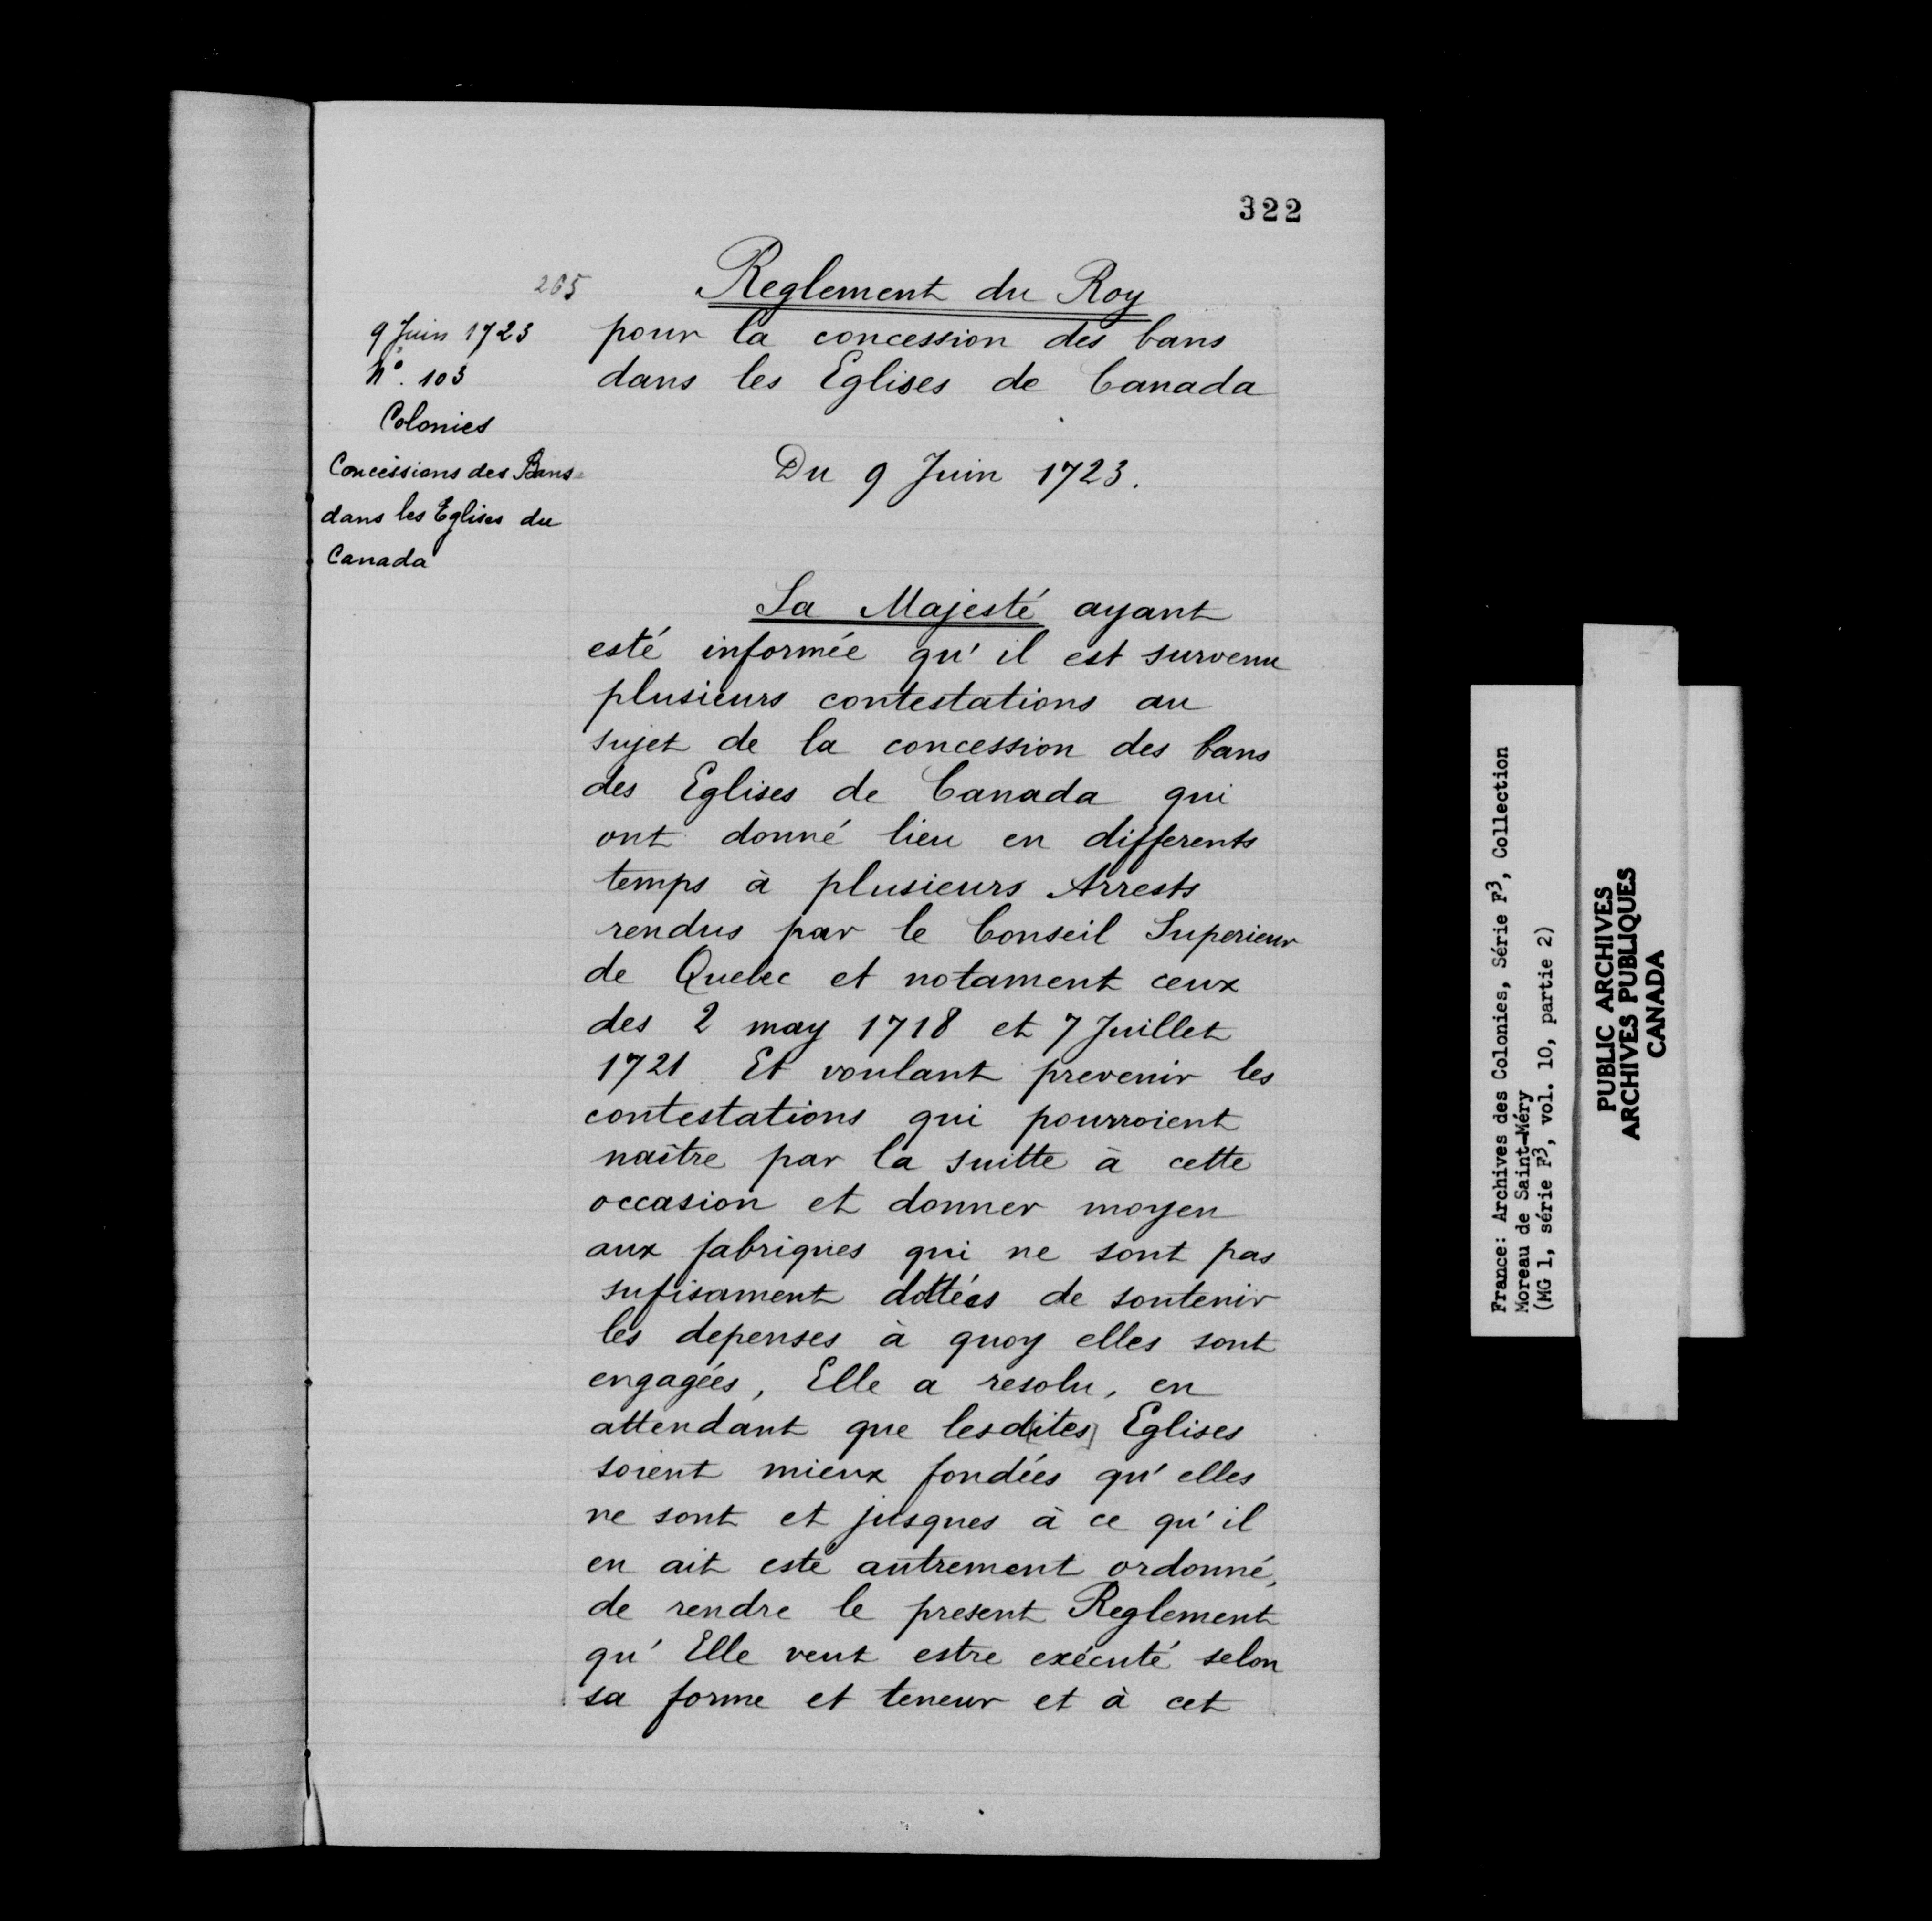 322
265
Reglement du Roy
pour la concession des bans
dans les Eglises de Canada
9 Juin 1723
N°. 103
Colonies
Concessions des Bans
dans les Eglises du
Canada
Du 9 Juin 1723.
Sa Majesté ayant
esté informée qu'il est survenu
plusieurs contestations au
sujet de la concession des bans
des Eglises de Canada qui
ont donné lieu en differents
temps à plusieurs Arrests
rendus par le Conseil Superieur
de Quebec et notament ceux
des 2 may 1718 et 7 Juillet
1721. Et voulant prevenir les
contestations qui pourroient
naître par la suitte à cette
occasion et donner moyen
aux fabriques qui ne sont pas
sufisament dottées de soutenir
les depenses à quoy elles sont
engagées, Elle a resolu, en
attendant que lesd[ites] Eglises
soient mieux fondées qu'elles
ne sont et jusques à ce qu'il
en ait esté autrement ordonné,
de rendre le present Reglement
qu'Elle veut estre exécuté selon
sa forme et teneur et à cet
France: Archives des Colonies, Série F3, Collection
Moreau de Saint-Méry
(MG 1, série F3, vol. 10, partie 2)
PUBLIC ARCHIVES
ARCHIVES PUBLIQUES
CANADA